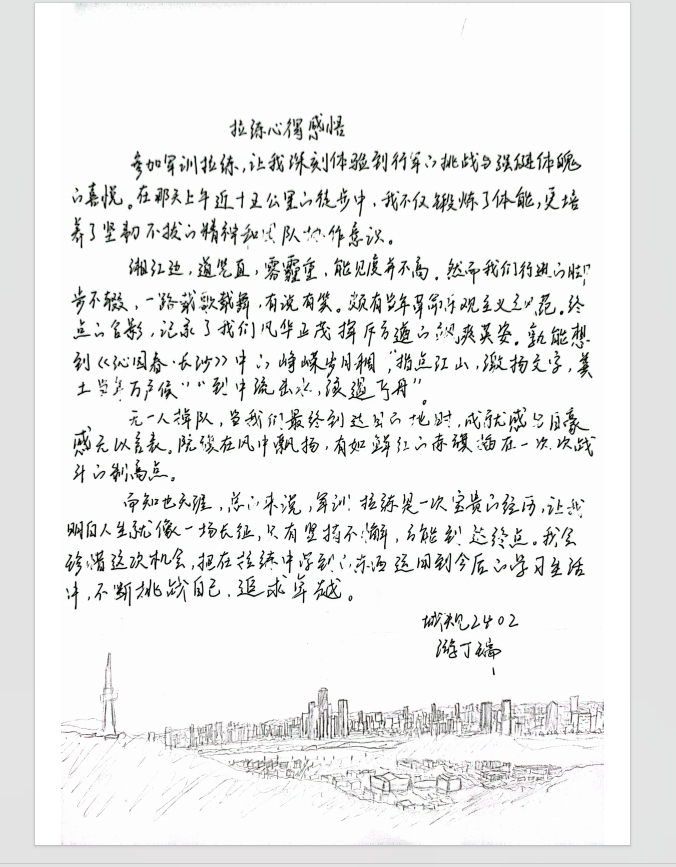 拉练心得感悟
参加军训拉练,让我深刻体验到行军的挑战与强健体魄
的喜悦。在那天上午近十五公里的徒步中,我不仅锻炼了体能,更培
养了坚韧不拔的精神和团队协作意识。
湘江边,道笔直,雾霾重,能见度并不高。然而我们行进的脚
步不辍,一路载歌载舞,有说有笑。颇有当年革命乐观主义之风范。终
点的合影,记录了我们风华正茂挥斥方遒的飒爽英姿。能想
到《沁园春·长沙》中的峥嵘岁月稠,“指点江山,激扬文字,粪
土当年万户侯”“到中流击水,浪遏飞舟”。
无一人掉队,当我们最终到达目的地时,成就感与自豪
感无以言表。院徽在风中飘扬,有如鲜红的赤旗插在一次次战
斗的制高点。
而知也无涯,总的来说,军训拉练是一次宝贵的经历,让我
明白人生就像一场长征,只有坚持不懈,方能到达终点。我会
珍惜这次机会,把在拉练中学到的东西运用到今后的学习生活
中,不断挑战自己,追求卓越。
城规2402
游丁瑞